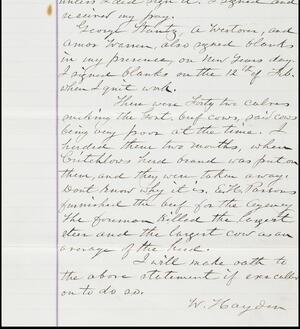 unless I did sign it. I signed and
received my pay.
George Wantz, A Westover, and
Amos Warren, also signed blanks
in my presence, on New Years day.
I signed blanks on the 12th of Feb.
when I quit work.
There were Forty two calves
sucking the Govt. beef cows, said cows
being very poor at the time. I
herded them two months, when
Critchlows herd brand was put on
them, and they were taken away.
Dont know why it is. E.H. Parsons
furnished the beef for the agency
The foreman killed the largest
steer and the largest cow as an
average of the herd.
I will make oath to
the above statement if called
on to do so.
W. Hayden